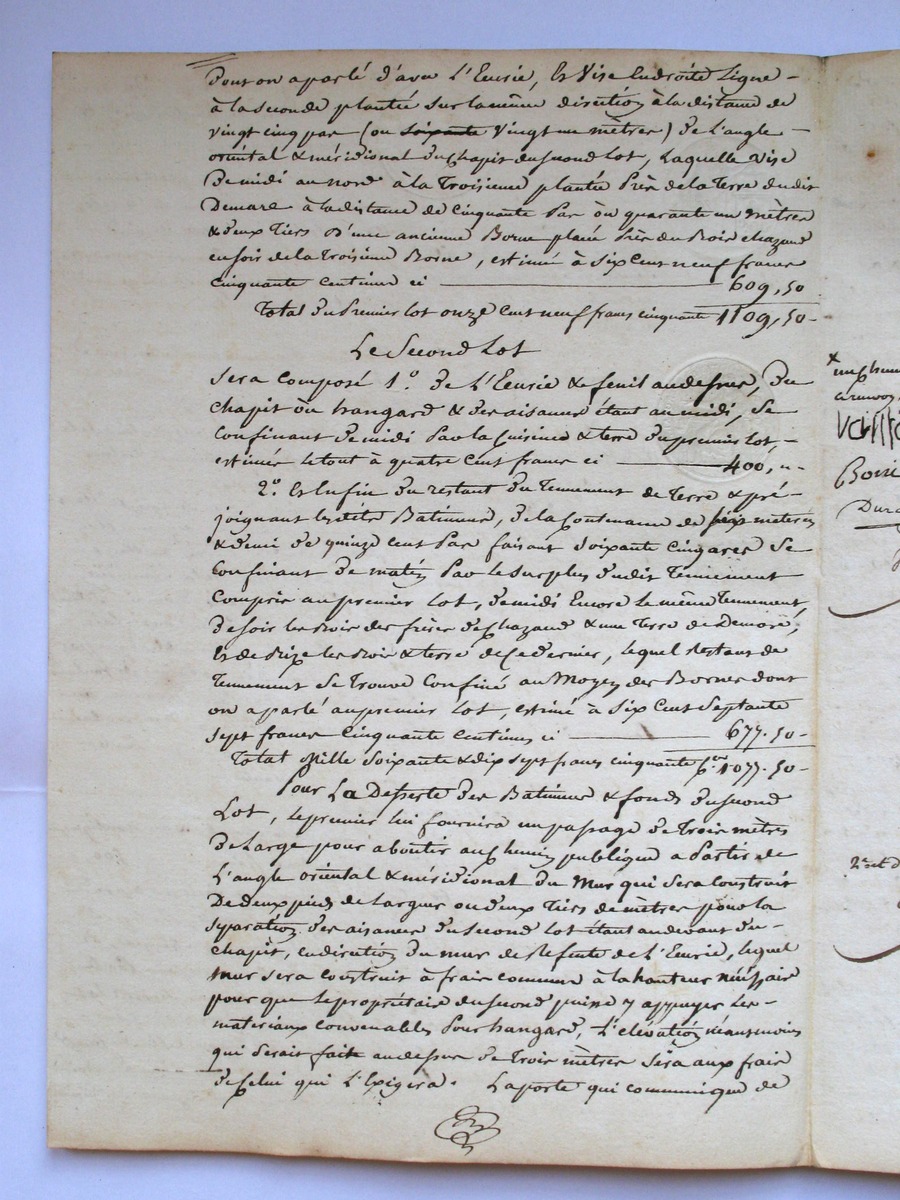 dont on a parlé d'avec l'Ecurie, & vise en droite ligne
à la seconde plantée sur la même direction à la distance de
vingt cinq pas (ou soixante vingt un mètres) de l'angle
oriental & méridional du chapit du second lot, laquelle vise
de midi au nord à la troisieme plantée près de la terre dudit
Demare à la distance de cinquante pas ou quarante un mètres
& deux tiers d'une ancienne Borne placée près du Bois chazaud
en soir de la troisieme Borne, estimé à six cent neuf francs
cinquante centimes ci 609,50
Total du premier lot onze cent neuf francs cinquante 1109,50
Le Second Lot
Sera composé 1.º de l'Ecurie & fenil au dessus, du
chapit ou hangard & des aisances étant au midi, se
confinant de midi par la cuisine & terre du premier lot,
estimés le tout à quatre cent francs ci 400, "
2.º Et enfin du restant du tennement de terre & pré
joignant lesdits Batimens, de la contenance de mètres
& demi de quinze cent pas faisant soixante cinq ares se
confinant de matin par le surplus dudit tennement
compris au premier lot, de midi encore le même tennement,
de soir les bois des frères de chazaud & une terre de Demaré,
& de bize les bois & terre de ce dernier, lequel restant de
tennement se trouve confiné au moyen des Bornes dont
on a parlé au premier lot, estimé à six cent septante
sept francs cinquante centimes ci 677.50
Total Mille soixante & dix sept francs cinquante 1077.50
Pour La Desserte des Batimens & fonds du second
Lot, le premier lui fournira un passage de trois mètres
de large pour aboutir au chemin publique a partir de
l'angle oriental & méridional du mur qui sera construit
de deux pieds de largeur ou deux tiers de mètres pour la
séparation des aisances du second lot étant au devant du
chapit, en direction du mur de refente de l'Ecurie, lequel
mur sera construit à frais commune à la hauteur nécessaire
pour que le propriétaire du second puisse y appuyer les
materiaux convenables pour hangard, l'élévation néanmoins
qui serait faite au dessus de trois mètres sera aux frais
de celui qui l'exigera. La porte qui communique de